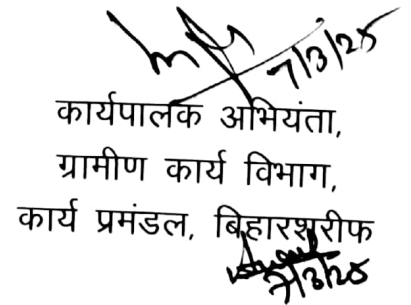 7/3/25
कार्यपालक अभियंता,
ग्रामीण कार्य विभाग,
कार्य प्रमंडल, बिहारशरीफ
7/3/25